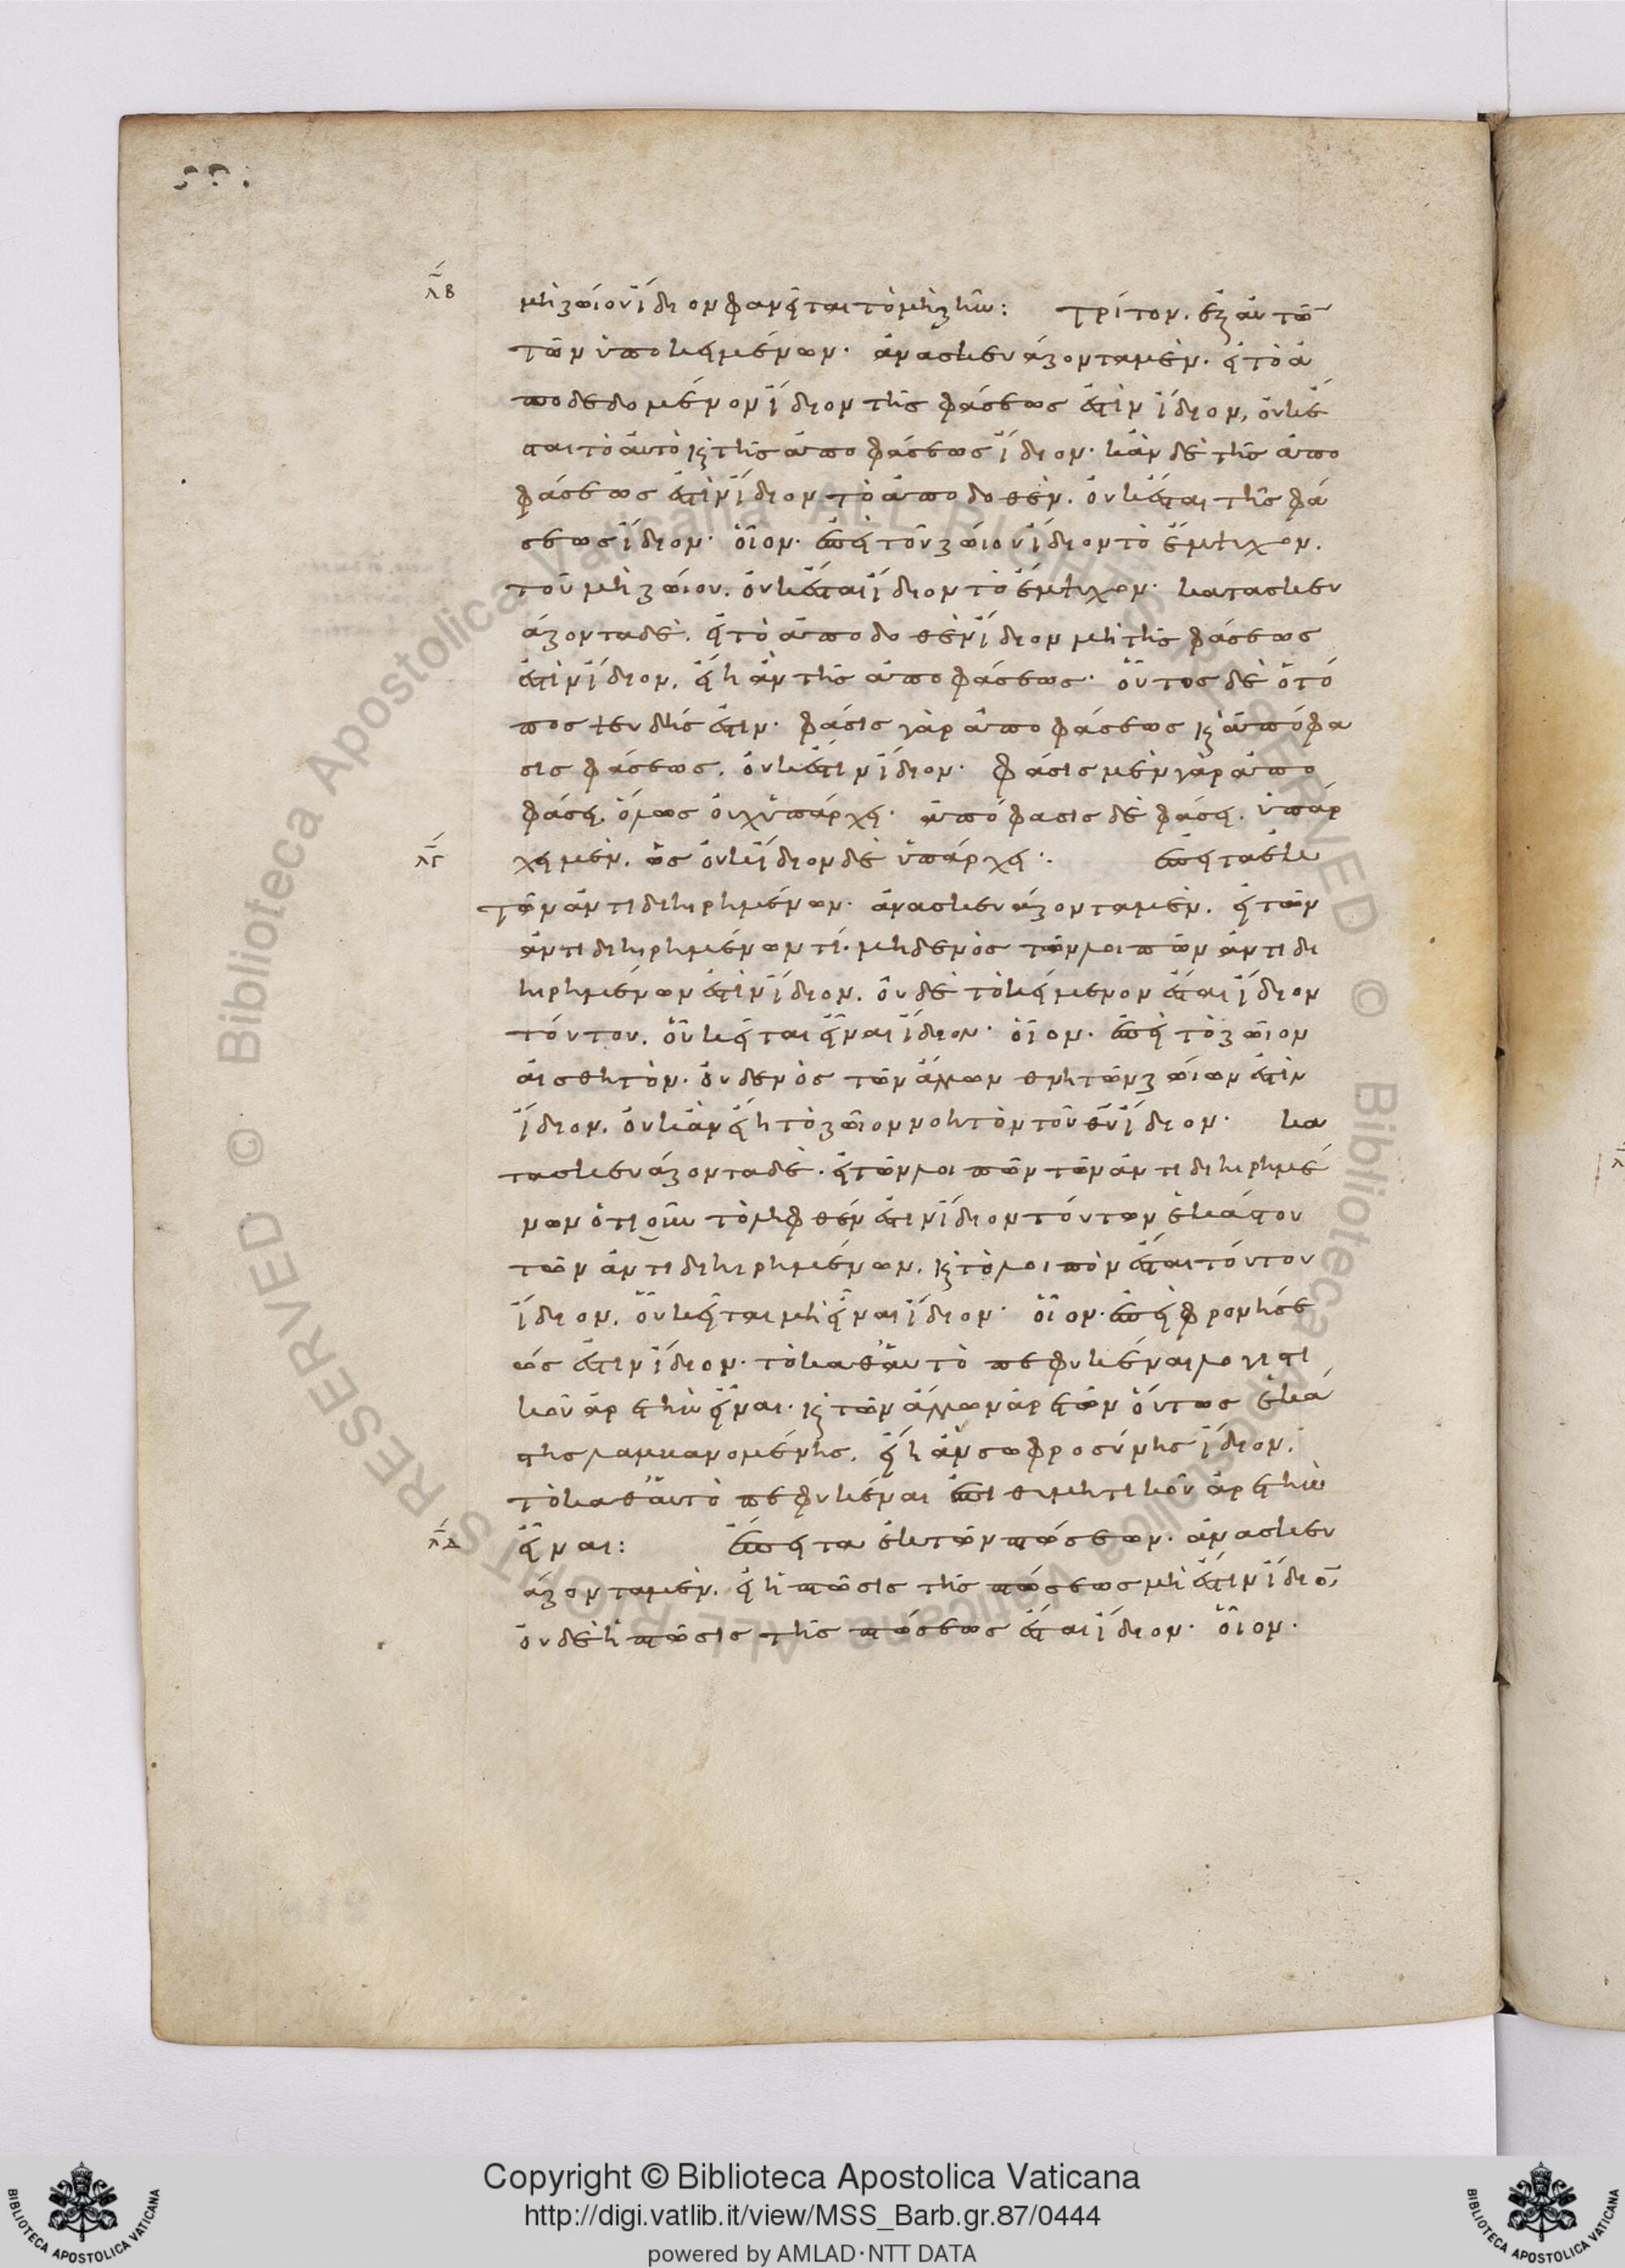 λβ
μὴ ζώιου ἴδιον φανεῖται τὸ μὴ ζῆν: τρίτον. ἐξ αὐτῶ
τῶν ὑποκειμένων. ἀνασκευάζοντα μὲν. εἰ τὸ ἀ
ποδεδομένον ἴδιον τῆς φάσεως ἐστὶν ἴδιον, οὐκ ἔ
σται τὸ αὐτὸ καὶ τῆς ἀποφάσεως ἴδιον. κἂν δὲ τῆς ἀπο
φάσεως ἐστὶν ἴδιον τὸ ἀποδοθὲν. οὐκ ἔσται τῆς φά
σεως ἴδιον. οἷον. ἐπεὶ τοῦ ζώιου ἴδιον τὸ ἔμψυχον.
τοῦ μὴ ζώιου. οὐκ ἔσται ἴδιον τὸ ἔμψυχον. κατασκευ
άζοντα δὲ. εἰ τὸ ἀποδοθὲν ἴδιον μὴ τῆς φάσεως
ἐστὶν ἴδιον, εἴη ἂν τῆς ἀποφάσεως. οὗτος δὲ ὁ τό
πος ψευδής ἐστιν. φάσις γὰρ ἀποφάσεως καὶ ἀπόφα
σις φάσεως. οὐκ ἔστιν ἴδιον. φάσις μὲν γὰρ ἀπο
φάσει. ὅμως οὐχ ὑπάρχει. ἀπόφασις δὲ φάσει. ὑπάρ
λγ
χει μὲν. ὡς οὐκ ἴδιον δὲ ὑπάρχει:. ἔπειτα ἐκ
τῶν ἀντιδιηιρημένων. ἀνασκευάζοντα μὲν. εἰ τῶν
ἀντιδιηιρημένων τί. μηδενὸς τῶν λοιπῶν ἀντιδι
ηιρημένων ἐστὶν ἴδιον. οὐδὲ τὸ κείμενον ἔσται ἴδιον
τούτου. οὗ κεῖται εἶναι ἴδιον. οἷον. ἐπεὶ τὸ ζῶιον
αἰσθητὸν. οὐδενὸς τῶν ἄλλων θνητῶν ζώιων ἐστὶν
ἴδιον. οὐκ ἂν εἴη τὸ ζῶιον νοητὸν τοῦ θυ ἴδιον. κα
τασκευάζοντα δὲ. εἰ τῶν λοιπῶν τῶν ἀντιδιηιρημέ
νων ὁτιοῦν τὸ ληφθέν ἐστιν ἴδιον τούτων ἑκάστου
τῶν ἀντιδιηιρημένων. καὶ τὸ λοιπὸν ἔσται τούτου
ἴδιον. οὗ κεῖται μὴ εἶναι ἴδιον. οἷον. ἐπεὶ φρονήσε
ώς ἐστιν ἴδιον. τὸ καθ' αὑτὸ πεφυκέναι λογιστι
κοῦ ἀρετὴν εἶναι. καὶ τῶν ἄλλων ἀρετῶν οὕτως ἑκά
στης λαμβανομένης. εἴη ἂν σωφροσύνης ἴδιον.
τὸ καθ' αὑτὸ πεφυκέναι ἐπιθυμητικοῦ ἀρετὴν
λδ
εἶναι: ἔπειτα ἐκ τῶν πτώσεων. ἀνασκευ
άζοντα μὲν. εἰ ἡ πτῶσις τῆς πτώσεως μὴ ἐστιν ἴδιο,
οὐδὲ ἡ πτῶσις τῆς πτώσεως ἔσται ἴδιον. οἷον.
ALL RIGHTS RESERVED © Biblioteca Apostolica Vaticana ALL RIGHTS RESERVED © Biblioteca Apostolica Vaticana
Copyright © Biblioteca Apostolica Vaticana
http://digi.vatlib.it/view/MSS_Barb.gr.87/0444
powered by AMLAD·NTT DATA
BIBLIOTECA APOSTOLICA VATICANA
BIBLIOTECA APOSTOLICA VATICANA